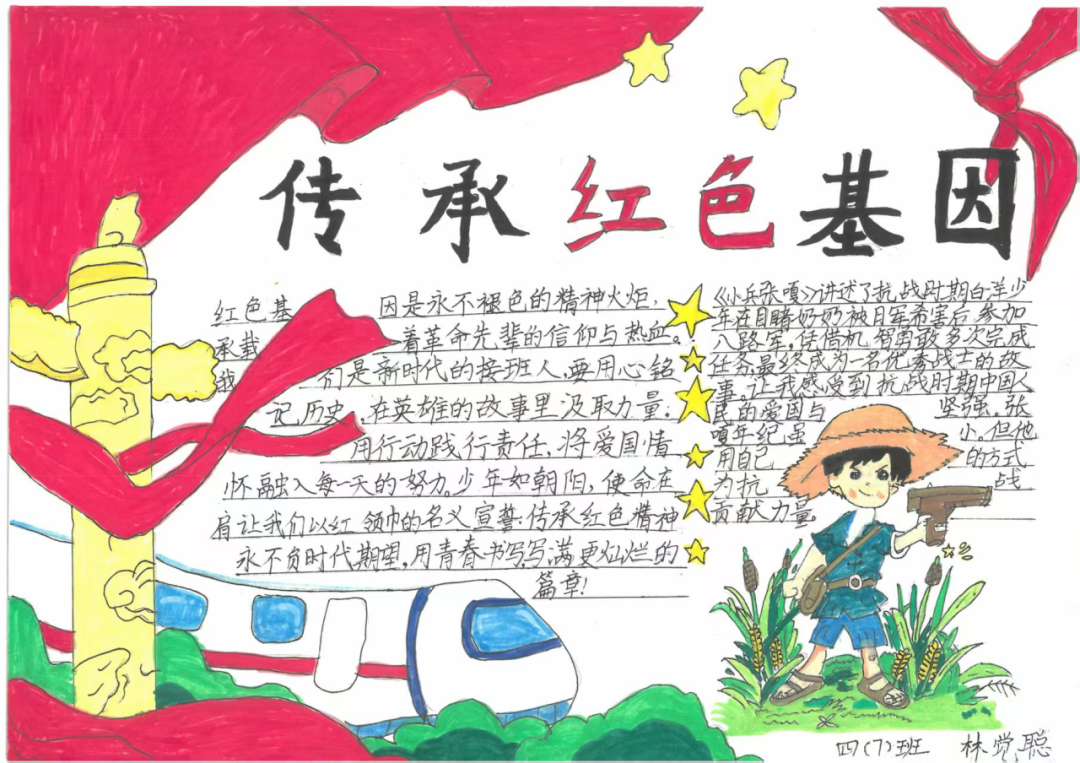 传承红色基因
红色基因是永不褪色的精神火炬，
承载着革命先辈的信仰与热血。
我们是新时代的接班人，要用心铭
记历史，在英雄的故事里汲取力量，
用行动践行责任，将爱国情
怀融入每一天的努力。少年如朝阳，使命在
肩让我们以红领巾的名义宣誓：传承红色精神
永不负时代期望，用青春书写写满更灿烂的
篇章！
《小兵张嘎》讲述了抗战时期白洋少
年在目睹奶奶被日军杀害后，参加
八路军，凭借机智勇敢多次完成
任务最终成为一名优秀战士的故
事。让我感受到抗战时期中国人
民的爱国与坚强。张
嘎年纪虽小，但他
用自己的方式
为抗战
贡献力量
四(7)班 林觉聪